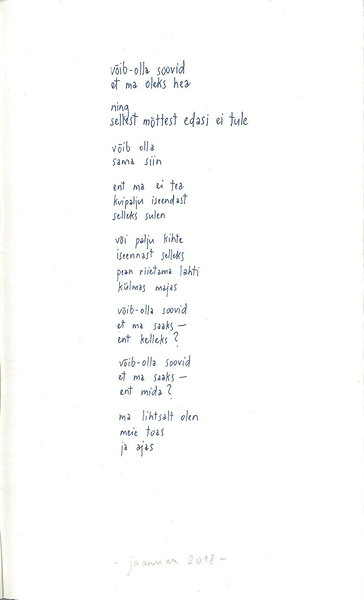 võib-olla soovid
et ma oleks hea
ning
sellest mõttest edasi ei tule
võib olla
sama siin
ent ma ei tea
kuipalju iseendast
selleks sulen
või palju kihte
iseennast selleks
pean riietama lahti
külmas majas
võib-olla soovid
et ma saaks –
ent kelleks?
võib-olla soovid
et ma saaks –
ent mida?
ma lihtsalt olen
meie toas
ja ajas
- jaanuar 2018 -